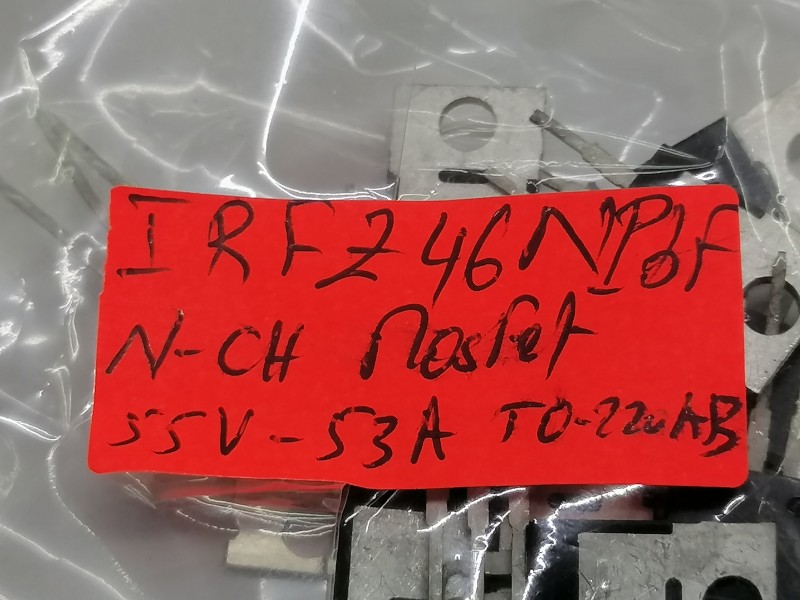 IRFZ46NPbF
N-CH Mosfet
55V-53A TO-220AB